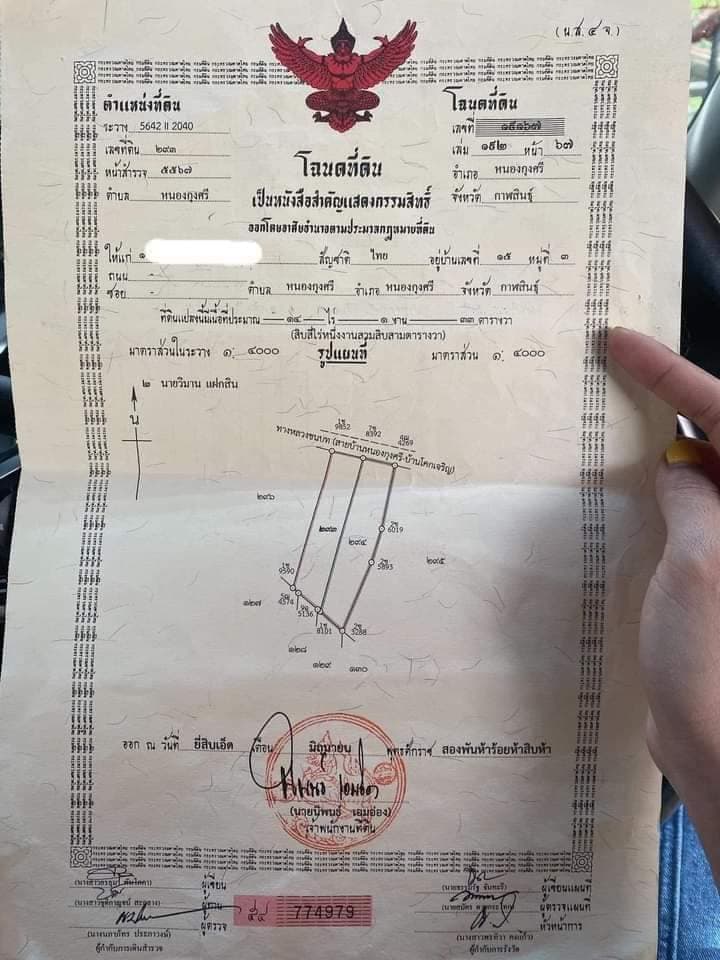 (น.ส.๔ จ.)
ตำแหน่งที่ดิน
ระวาง 5642 II 2040
เลขที่ดิน ๒๙๓
หน้าสำรวจ ๕๕๖๗
ตำบล หนองกุงศรี
โฉนดที่ดิน
เลขที่ ๑๙๑๖๗
เล่ม ๑๙๒ หน้า ๖๗
อำเภอ หนองกุงศรี
จังหวัด กาฬสินธุ์
โฉนดที่ดิน
เป็นหนังสือสำคัญแสดงกรรมสิทธิ์
ออกโดยอาศัยอำนาจตามประมวลกฎหมายที่ดิน
ให้แก่ ๑ สัญชาติ ไทย อยู่บ้านเลขที่ ๑๕ หมู่ที่ ๓
ถนน -
ซอย - ตำบล หนองกุงศรี อำเภอ หนองกุงศรี จังหวัด กาฬสินธุ์
ที่ดินแปลงนี้มีเนื้อที่ประมาณ ๑๔ ไร่ ๑ งาน ๓๓ ตารางวา
(สิบสี่ไร่หนึ่งงานสามสิบสามตารางวา)
มาตราส่วนในระวาง ๑: ๔๐๐๐ รูปแผนที่ มาตราส่วน ๑: ๔๐๐๐
๒ นายวิมาน แฝกสิน
น
9852
8392
4269
ทางหลวงชนบท (สายบ้านหนองกุงศรี-บ้านโคกเจริญ)
๒๙๖
๒๙๓
6019
๒๙๔
๒๙๕
5893
9590
4574
5136
๑๒๗
8101
5288
๑๒๘
๑๒๙
๑๓๐
ออก ณ วันที่ ยี่สิบเอ็ด เดือน มิถุนายน พุทธศักราช สองพันห้าร้อยห้าสิบห้า
(นายนิพนธ์ เอมอ่อง)
เจ้าพนักงานที่ดิน
ผู้เขียน
ผู้ทาน
ผู้ตรวจ
ผู้กำกับการเดินสำรวจ
๕๔ 774979
ผู้เขียนแผนที่
ผู้ตรวจแผนที่
หัวหน้าการ
ผู้กำกับการรังวัด